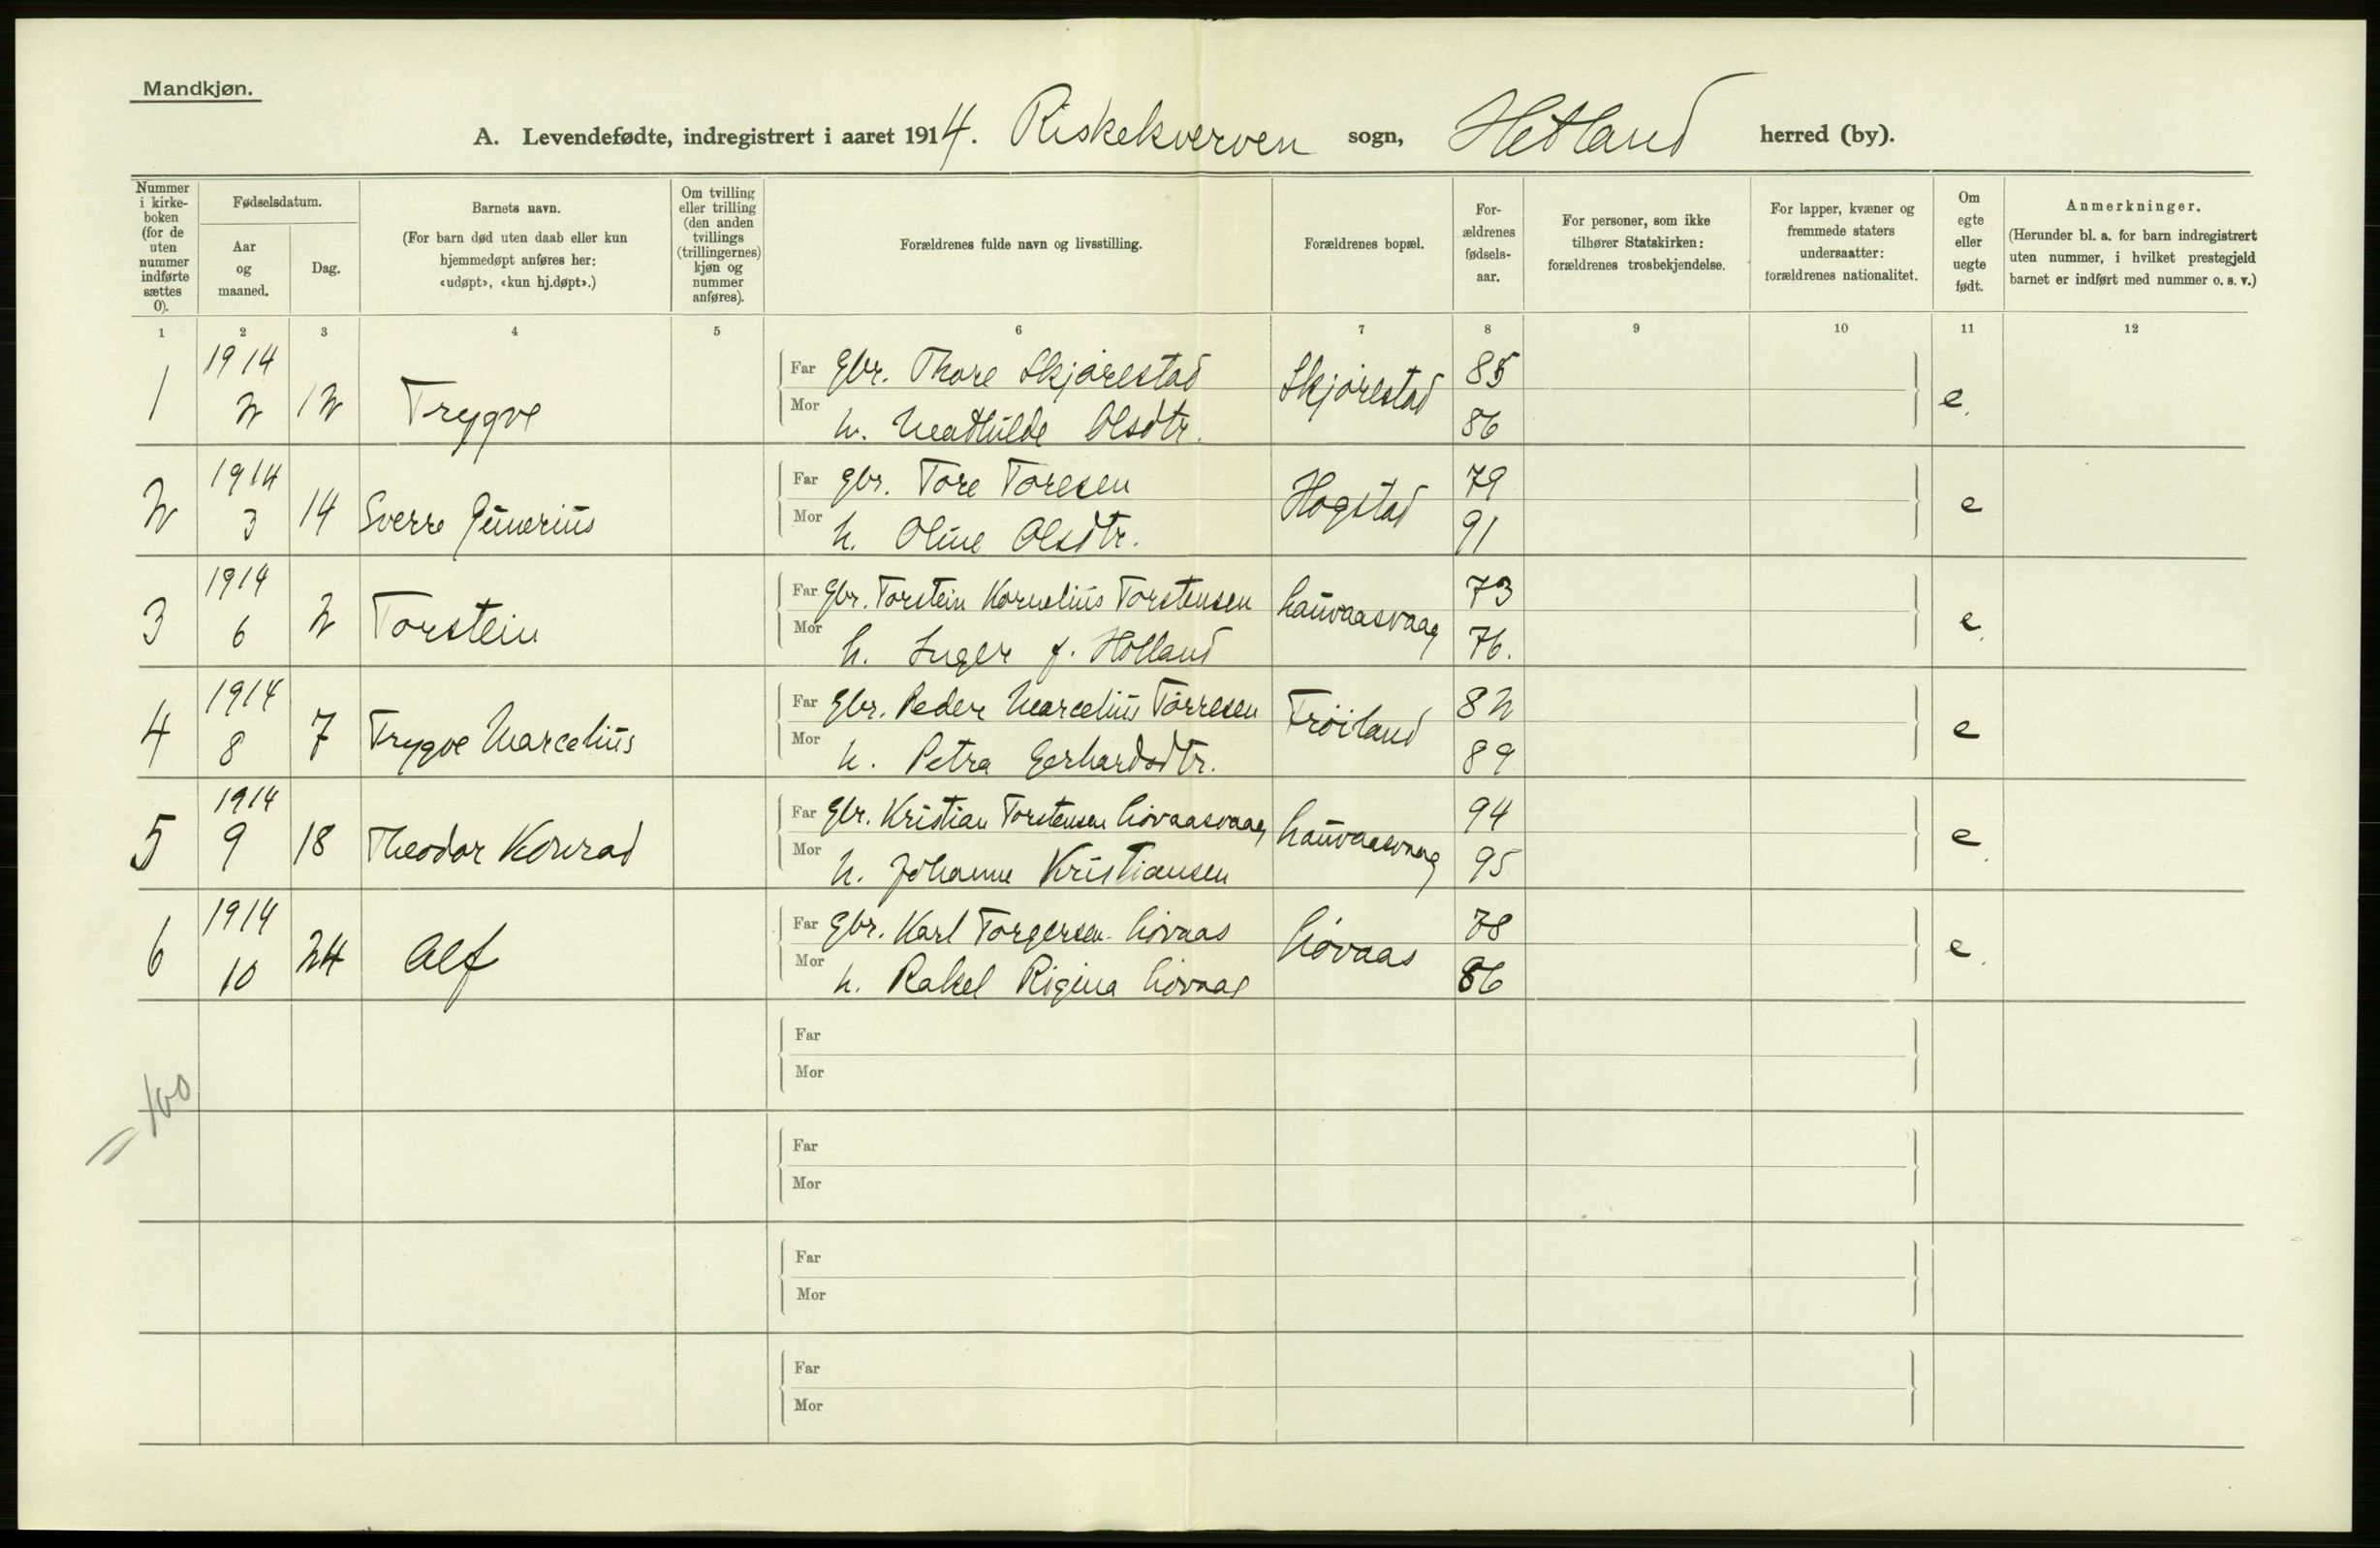 Mandkjøn.
A. Levendefødte, indregistrert i aaret 1914. Riskekverven sogn, Hetland herred (by).
Nummer i kirke-boken (for de uten nummer indførte sættes 0).
Fødselsdatum.
Aar og maaned.
Dag.
Barnets navn.
(For barn død uten daab eller kun hjemmedøpt anføres her: «udøpt», «kun hj.døpt».)
Om tvilling eller trilling (den anden tvillings (trillingernes) kjøn og nummer anføres).
Forældrenes fulde navn og livsstilling.
Forældrenes bopæl.
For-ældrenes fødsels-aar.
For personer, som ikke tilhører Statskirken: forældrenes trosbekjendelse.
For lapper, kvæner og fremmede staters undersaatter: forældrenes nationalitet.
Om egte eller uegte født.
Anmerkninger.
(Herunder bl. a. for barn indregistrert uten nummer, i hvilket prestegjeld barnet er indført med nummer o. s. v.)
1 2 3 4 5 6 7 8 9 10 11 12
1 1914 2 12 Trygve
Far Gbr. Thore Skjørestad Skjørestad 85 e.
Mor h. Mathilde Olsdtr. 86
2 1914 3 14 Sverre Gunerius
Far Gbr. Tore Toresen Hogstad 79 e
Mor h. Oline Olsdtr. 91
3 1914 6 2 Torstein
Far Gbr. Torstein Kornelius Torstensen Lauvaasvaag 73 e.
Mor h. Inger f. Holland 76.
4 1914 8 7 Trygve Marcelius
Far Gbr. Peder Marcelius Tørresen Frøiland 82 e
Mor h. Petra Gerhardsdtr. 89
5 1914 9 18 Theodor Konrad
Far Gbr. Kristian Torstensen Løvaasvaag Lauvaasvaag 94 e.
Mor h. Johanne Kristiansen 95
6 1914 10 24 Alf
Far Gbr. Karl Torgersen Løvaas Løvaas 78 e.
Mor h. Rakel Rigina Løvaas 86
Far
Mor
Far
Mor
Far
Mor
Far
Mor